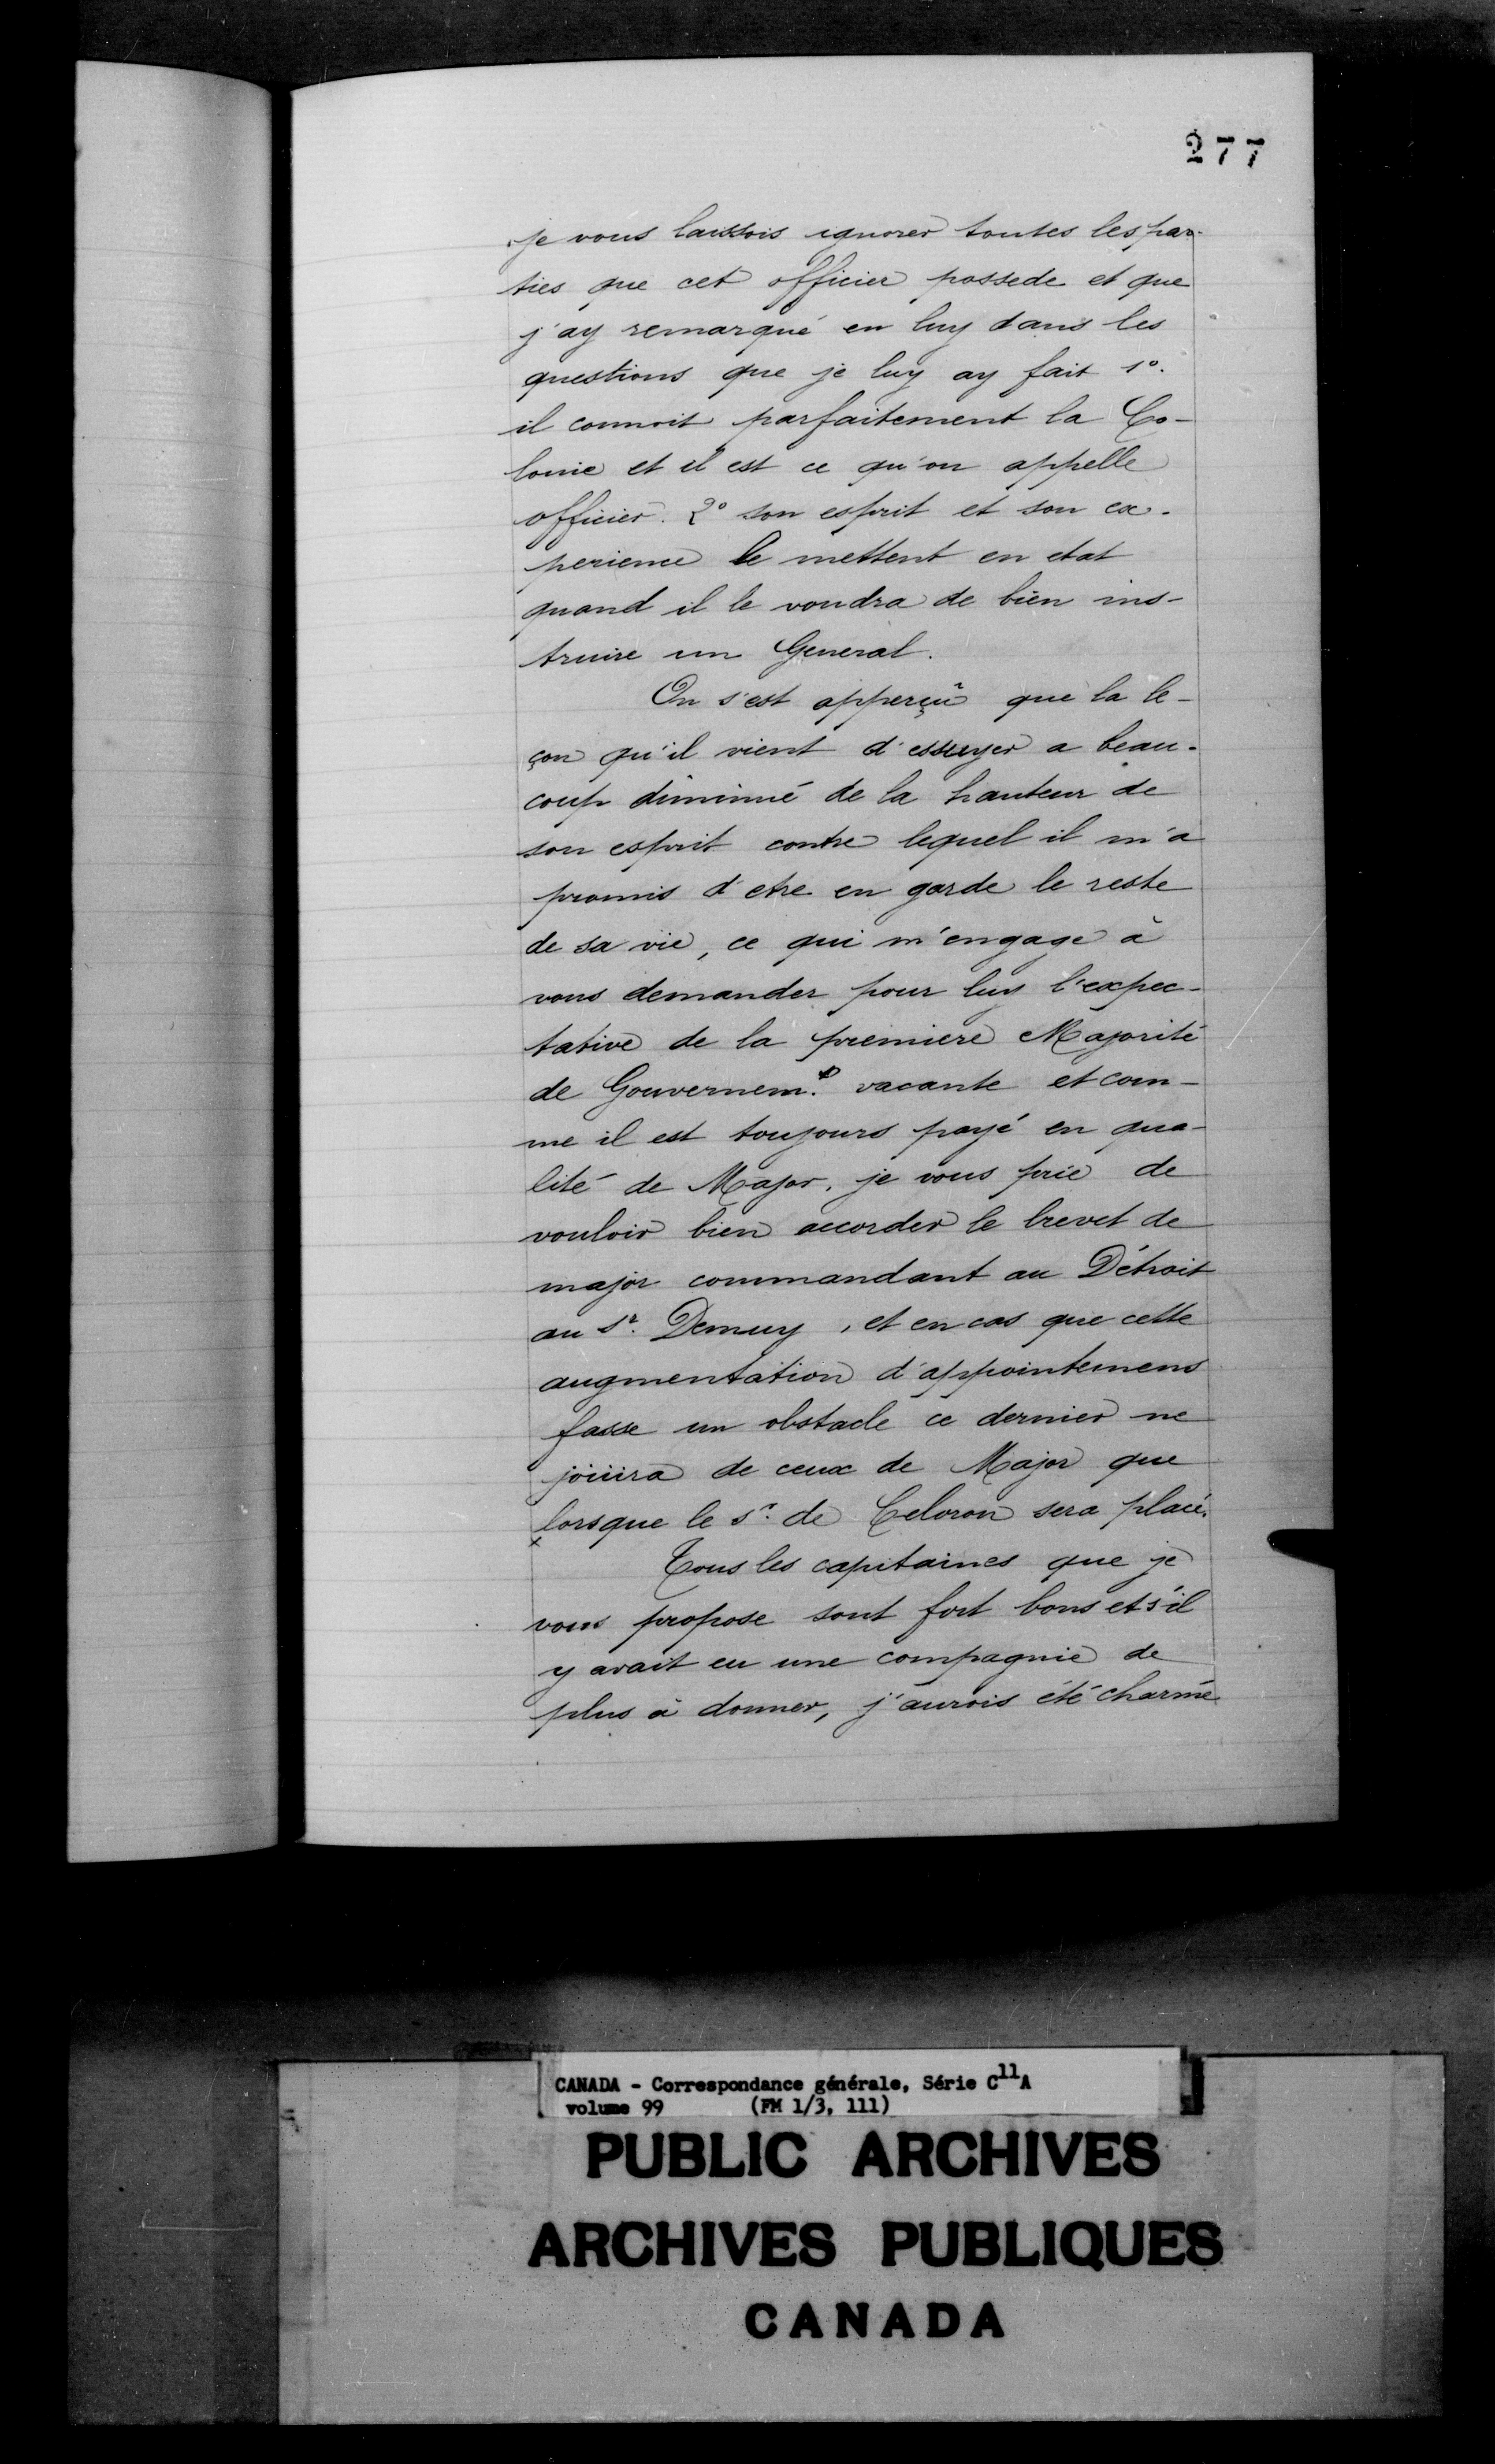 277
je vous laissois ignorer toutes les par-
ties que cet officier possede et que
j'ay remarqué en luy dans les
questions que je luy ay fait 1°.
il connoit parfaitement la Co-
lonie et il est ce qu'on appelle
officier. 2° son esprit et son ex-
perience le mettent en etat
quand il le voudra de bien ins-
truire un General.
On s'est apperçû que la le-
çon qu'il vient d'essuyer a beau-
coup diminué de la hauteur de
son esprit contre lequel il m'a
promis d'etre en garde le reste
de sa vie, ce qui m'engage à
vous demander pour luy l'expec-
tative de la premiere Majorité
de Gouvernem.t vacante et com-
me il est toujours payé en qua-
lité de Major, je vous prie de
vouloir bien accorder le brevet de
major commandant au Détroit
au Sr. Demuy, et en cas que cette
augmentation d'appointemens
fasse un obstacle ce dernier ne
joüira de ceux de Major que
lorsque le Sr. de Celoron sera placé.
x
Tous les capitaines que je
vous propose sont fort bons et s'il
y avait eu une compagnie de
plus à donner, j'aurois été charmé
CANADA - Correspondance générale, Série C11A
volume 99 (FM 1/3, 111)
PUBLIC ARCHIVES
ARCHIVES PUBLIQUES
CANADA